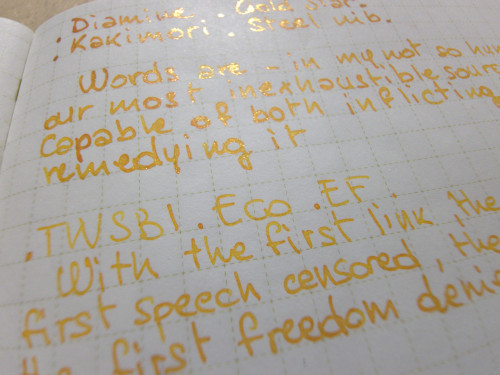 : Diamine . Gold Star.
: Kakimori . Steel nib.
Words are - in my not so hum
our most inexhaustible sour
Capable of both inflicting
remedying it
. TWSBI . Eco . EF .
With the first link, the
first speech censored, the
the first freedom denie